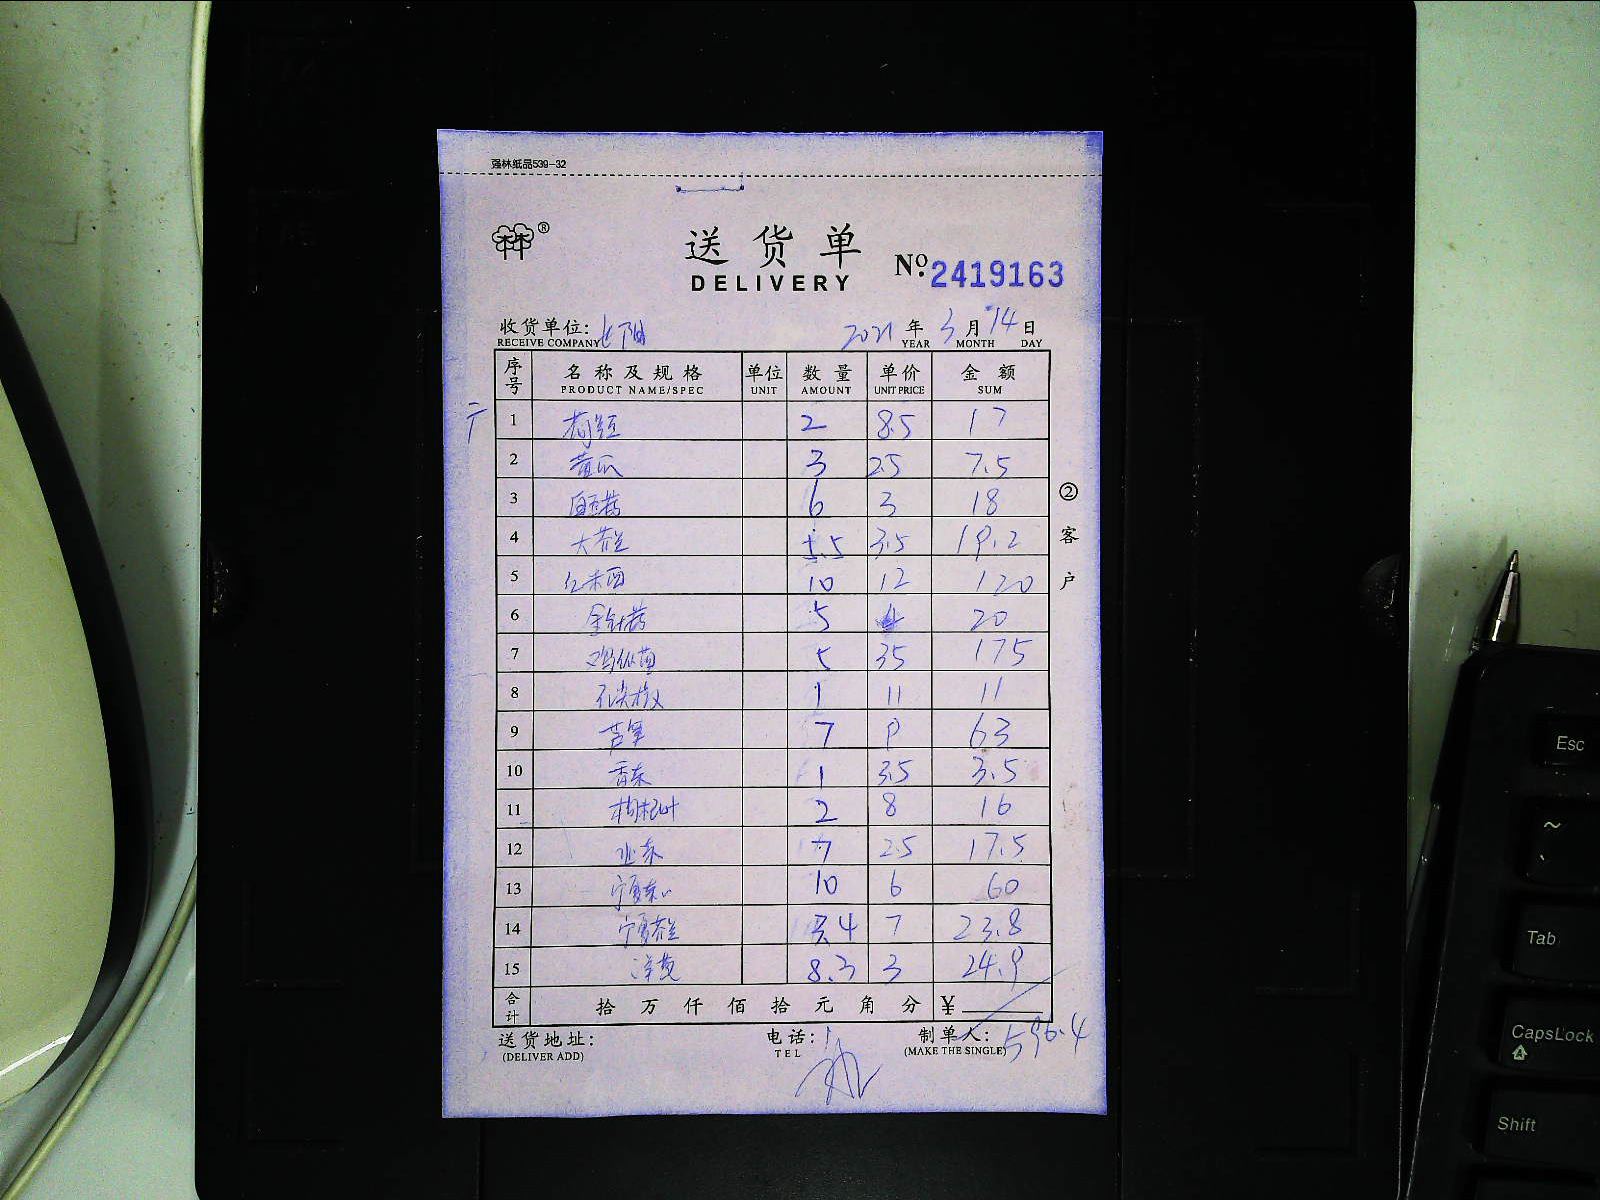 强林纸品539-32
林®
送货单
DELIVERY
№ 2419163
收货单位:
RECEIVE COMPANY
2021 年 3 月 14 日
YEAR MONTH DAY
序号 名称及规格 单位 数量 单价 金额
PRODUCT NAME/SPEC UNIT AMOUNT UNIT PRICE SUM
1 2 8.5 17
2 黄瓜 3 2.5 7.5
3 白玉菇 6 3 18
4 大芥兰 5.5 3.5 19.2
5 红米西 10 12 120
6 金针菇 5 4 20
7 鸡枞菌 5 35 175
8 1 11 11
9 芦笋 7 9 63
10 香菜 1 3.5 3.5
11 2 8 16
12 7 2.5 17.5
13 宁夏菜心 10 6 60
14 宁夏芥兰 3.4 7 23.8
15 洋葱 8.3 3 24.9
合计 拾 万 仟 佰 拾 元 角 分 ¥
596.4
送货地址: 电话: 制单人:
(DELIVER ADD) TEL (MAKE THE SINGLE)
②客户
Esc
~
Tab
CapsLock
Shift